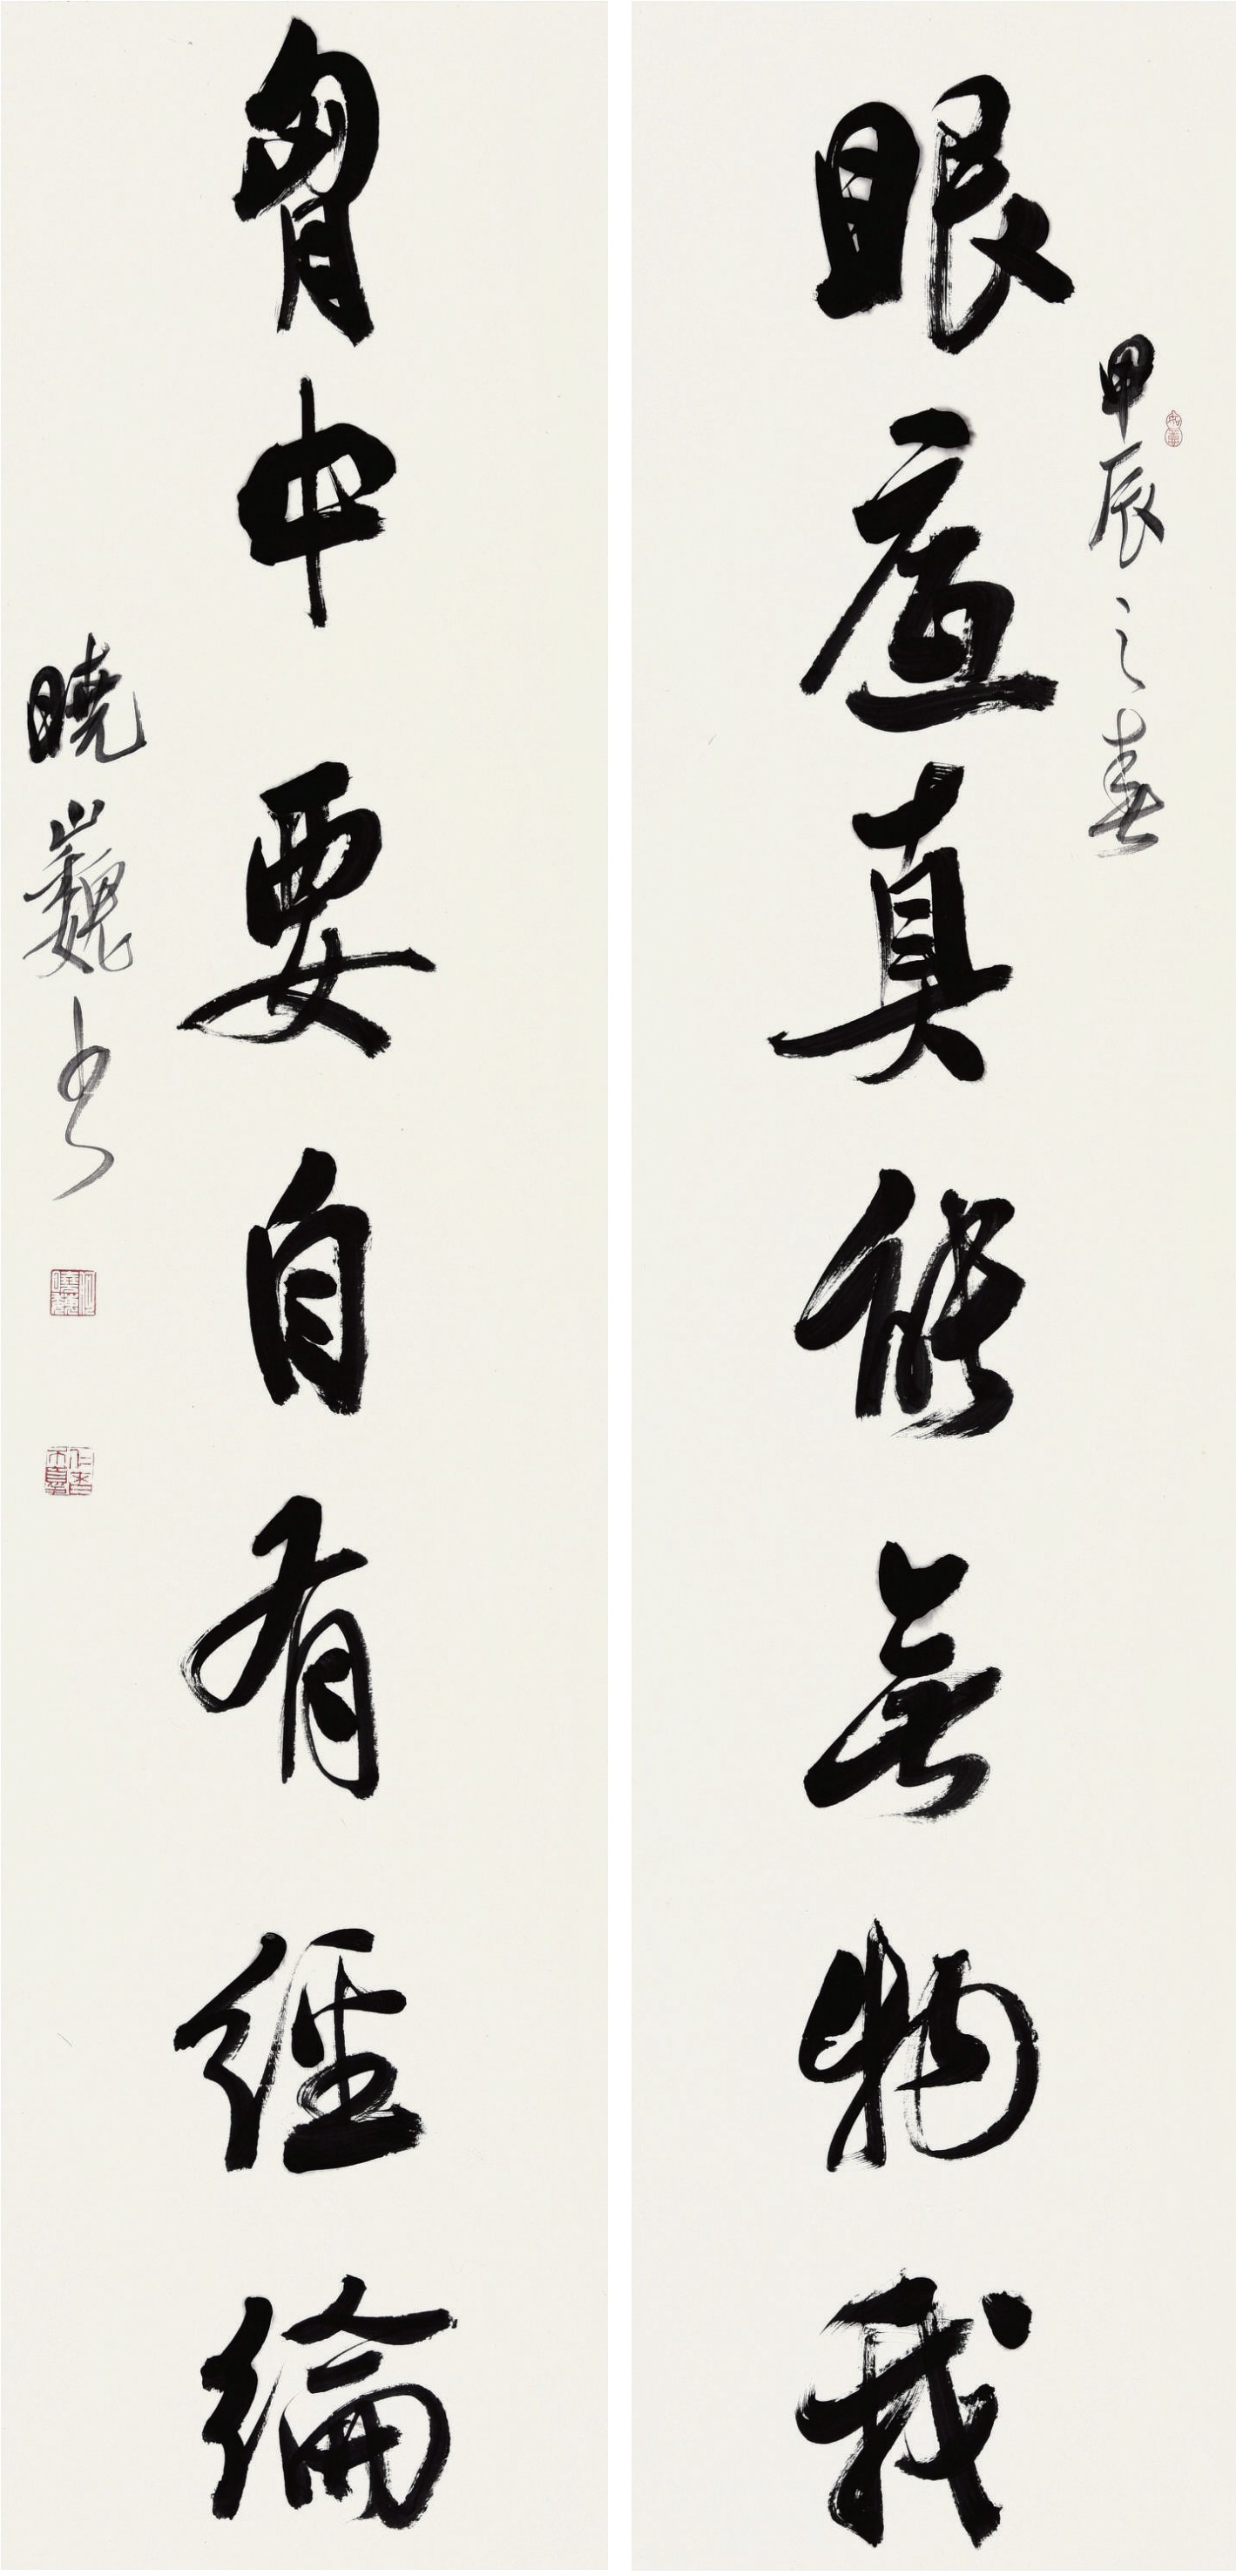 甲辰之春
眼底真能無物我
胷中要自有經綸
曉巍書